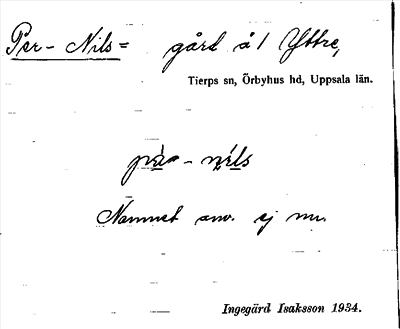 Per-Nils= gård å 1 Yttre,
Tierps sn, Örbyhus hd, Uppsala län.
Namnet anv. ej nu.
Ingegärd Isaksson 1934.